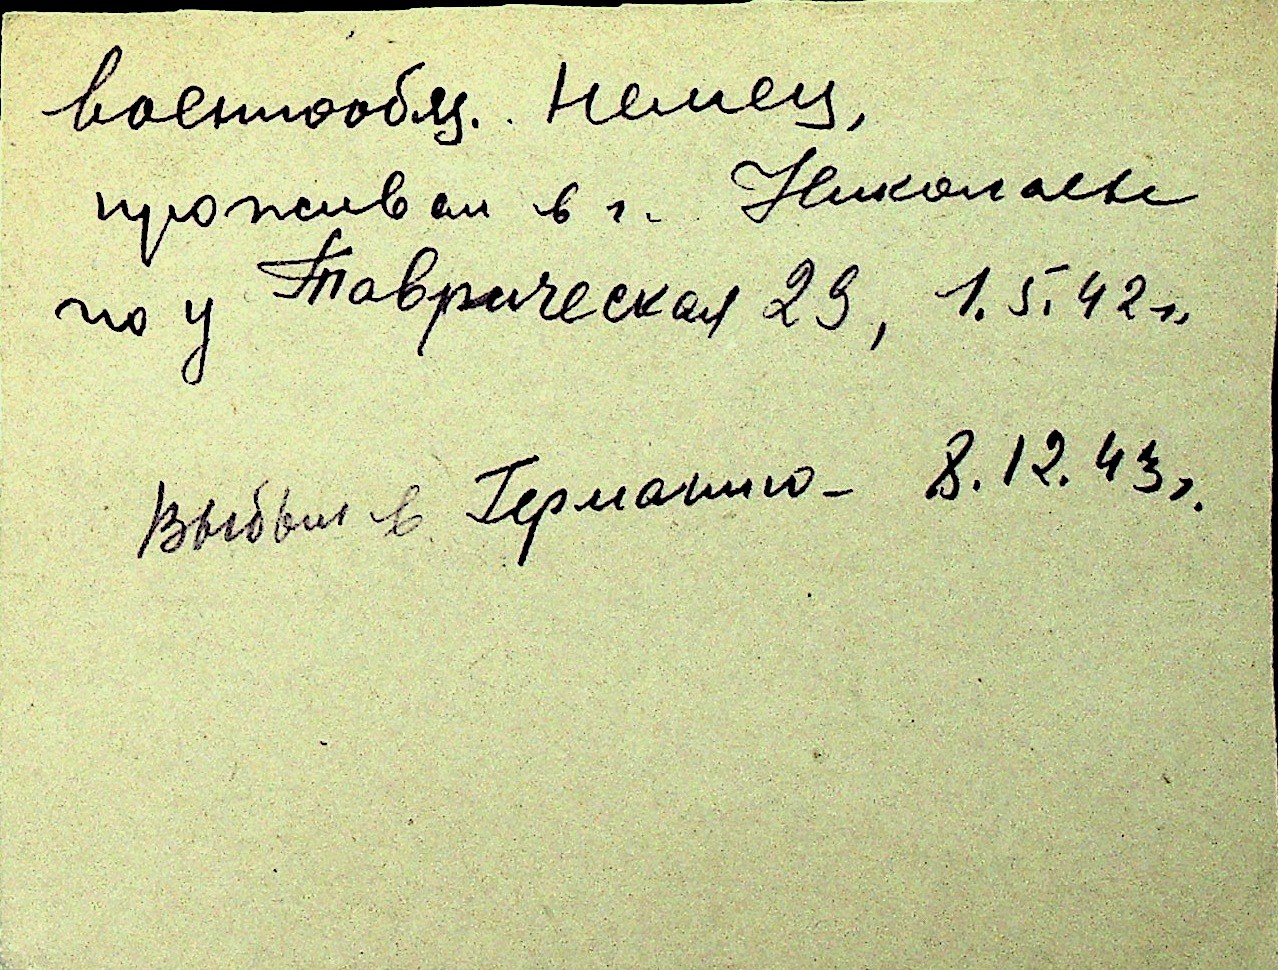 военнообяз. Немец,
проживал в г. Николаеве
по у Таврическая 29, 1.5.42 г.
Выбыл в Германию - 8.12.43 г.